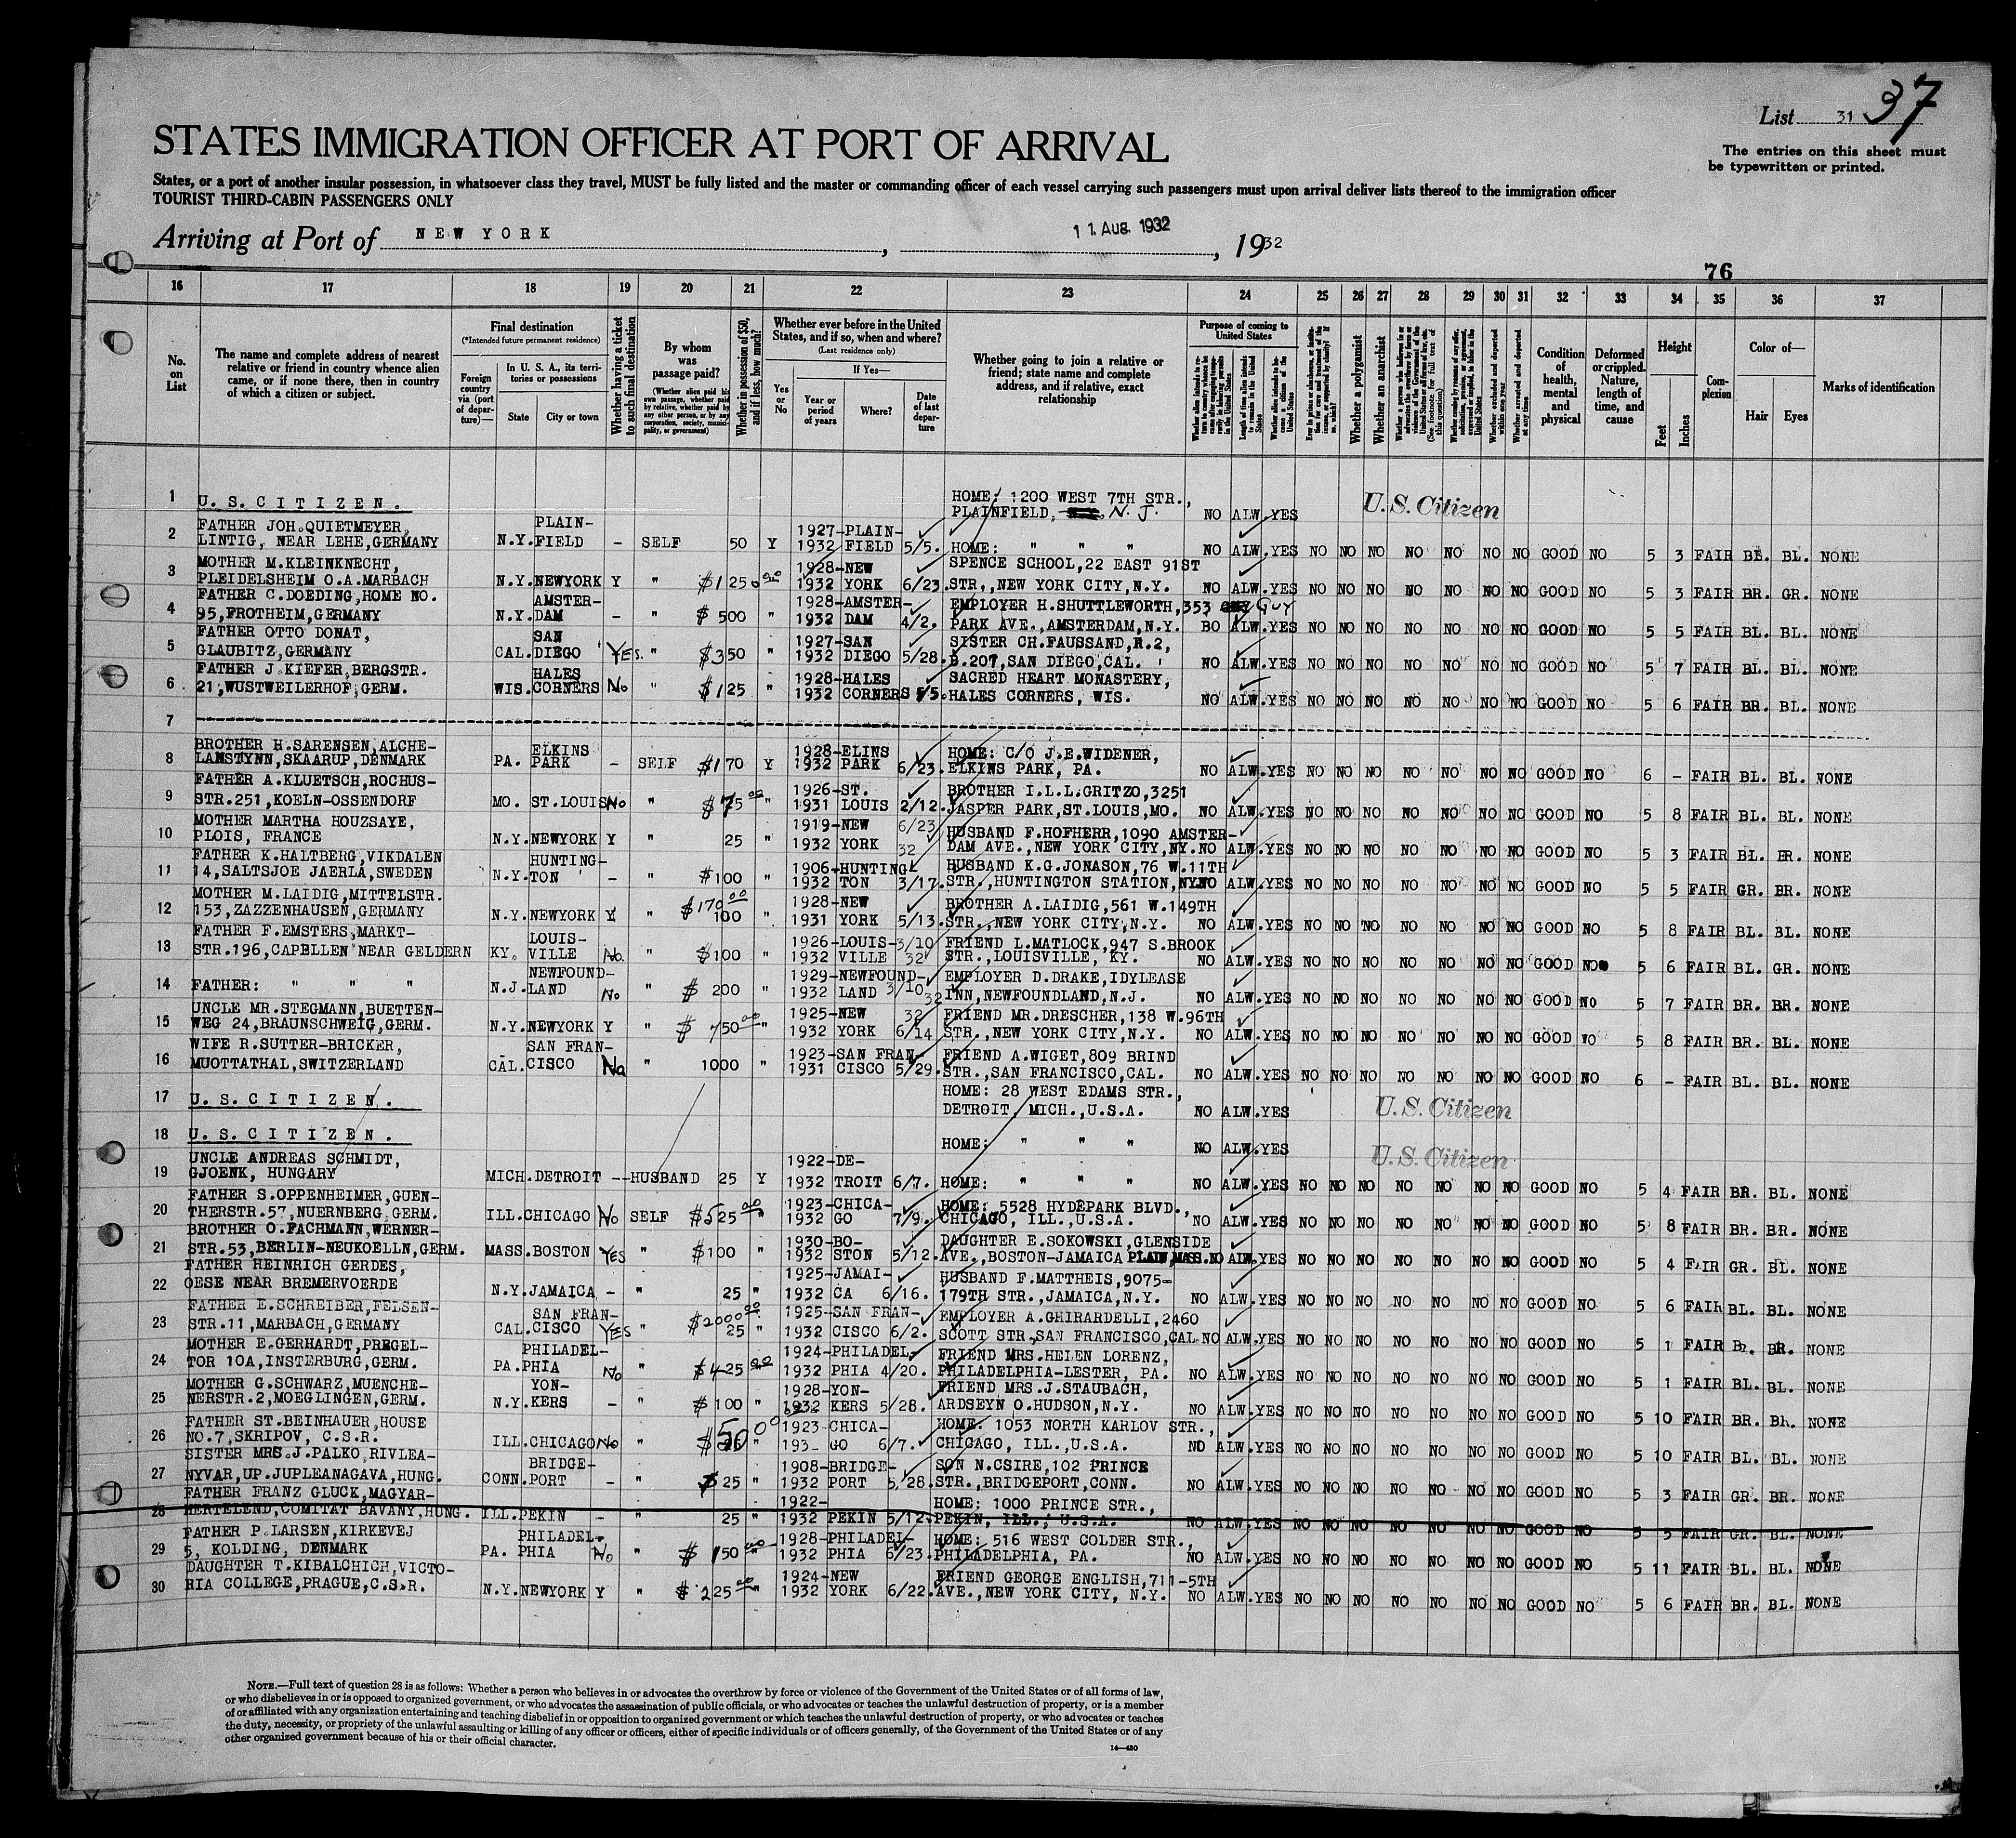 List 31 37
The entries on this sheet must
be typewritten or printed.
STATES IMMIGRATION OFFICER AT PORT OF ARRIVAL
States, or a port of another insular possession, in whatsoever class they travel, MUST be fully listed and the master or commanding officer of each vessel carrying such passengers must upon arrival deliver lists thereof to the immigration officer
TOURIST THIRD-CABIN PASSENGERS ONLY
Arriving at Port of NEW YORK, 11 AUG. 1932, 1932
76
16 17 18 19 20 21 22 23 24 25 26 27 28 29 30 31 32 33 34 35 36 37
No. on List
The name and complete address of nearest relative or friend in country whence alien came, or if none there, then in country of which a citizen or subject.
Final destination
(*Intended future permanent residence)
Foreign country via (port of departure)—
In U. S. A., its territories or possessions
State
City or town
Whether having a ticket to such final destination
By whom was passage paid?
(Whether alien paid his own passage, whether paid by relative, whether paid by any other person, or by any corporation, society, municipality, or government)
Whether in possession of $50, and if less, how much?
Whether ever before in the United States, and if so, when and where?
(Last residence only)
Yes or No
If Yes—
Year or period of years
Where?
Date of last departure
Whether going to join a relative or friend; state name and complete address, and if relative, exact relationship
Purpose of coming to United States
Length of time alien intends to remain in the United States
Whether alien intends to become a citizen of the United States
Whether a polygamist
Whether an anarchist
Whether excluded and deported within one year
Whether arrested and deported at any time
Condition of health, mental and physical
Deformed or crippled. Nature, length of time, and cause
Height
Feet
Inches
Complexion
Color of—
Hair
Eyes
Marks of identification
1 U. S. CITIZEN. HOME: 1200 WEST 7TH STR., U.S. Citizen
PLAINFIELD, N. J. NO ALW. YES
2 FATHER JOH. QUIETMEYER, PLAIN- 1927-PLAIN-
LINTIG, NEAR LEHE, GERMANY N.Y. FIELD - SELF 50 Y 1932 FIELD 5/5. HOME: " " " NO ALW. YES NO NO NO NO NO NO NO GOOD NO 5 3 FAIR BL. BL. NONE
3 MOTHER M. KLEINKNECHT, 1928-NEW SPENCE SCHOOL, 22 EAST 91ST
PLEIDELSHEIM O.A. MARBACH N.Y. NEWYORK Y " $1250 00 1932 YORK 6/23. STR., NEW YORK CITY, N.Y. NO ALW. YES NO NO NO NO NO NO NO GOOD NO 5 3 FAIR BR. GR. NONE
4 FATHER C. DOEDING, HOME NO. AMSTER- 1928-AMSTER- EMPLOYER H. SHUTTLEWORTH, 353 GUY
95, FROTHEIM, GERMANY N.Y. DAM - " $500 " 1932 DAM 4/2. PARK AVE., AMSTERDAM, N.Y. BO ALW. YES NO NO NO NO NO NO NO GOOD NO 5 5 FAIR BL. BL. NONE
5 FATHER OTTO DONAT, SAN 1927-SAN SISTER CH. FAUSSAND, R.2,
GLAUBITZ, GERMANY CAL. DIEGO YES. " $350 " 1932 DIEGO 5/28. B.207, SAN DIEGO, CAL. NO ALW. YES NO NO NO NO NO NO NO GOOD NO 5 7 FAIR BL. BL. NONE
6 FATHER J. KIEFER, BERGSTR. HALES 1928-HALES SACRED HEART MONASTERY,
21, WUSTWEILERHOF, GERM. WIS. CORNERS No " $125 " 1932 CORNERS 5/5. HALES CORNERS, WIS. NO ALW. YES NO NO NO NO NO NO NO GOOD NO 5 6 FAIR BR. BL. NONE
7
8 BROTHER H. SARENSEN, ALCHE- ELKINS 1928-ELINS HOME: C/O J.E. WIDENER,
LANSTYNN, SKAARUP, DENMARK PA. PARK - SELF $170 Y 1932 PARK 6/23. ELKINS PARK, PA. NO ALW. YES NO NO NO NO NO NO NO GOOD NO 6 - FAIR BL. BL. NONE
9 FATHER A. KLUETSCH, ROCHUS- 1926-ST. BROTHER I.L.L. GRITZO, 3251
STR. 251, KOELN-OSSENDORF MO. ST. LOUIS No " $75 00 " 1931 LOUIS 2/12. JASPER PARK, ST. LOUIS, MO. NO ALW. YES NO NO NO NO NO NO NO GOOD NO 5 8 FAIR BL. BL. NONE
10 MOTHER MARTHA HOUZSAYE, 1919-NEW 6/23 HUSBAND F. HOFHERR, 1090 AMSTER-
PLOIS, FRANCE N.Y. NEWYORK Y " 25 " 1932 YORK 32 DAM AVE., NEW YORK CITY, NY. NO ALW. YES NO NO NO NO NO NO NO GOOD NO 5 3 FAIR BL. BR. NONE
11 FATHER K. HALTBERG, VIKDALEN HUNTING- 1906-HUNTING HUSBAND K.G. JONASON, 76 W. 11TH
14, SALTSJOE JAERLA, SWEDEN N.Y. TON - " $100 " 1932 TON 3/17. STR., HUNTINGTON STATION, NY. NO ALW. YES NO NO NO NO NO NO NO GOOD NO 5 5 FAIR GR. BR. NONE
12 MOTHER M. LAIDIG, MITTELSTR. $170 00 1928-NEW BROTHER A. LAIDIG, 561 W. 149TH
153, ZAZZENHAUSEN, GERMANY N.Y. NEWYORK Y " 100 " 1931 YORK 5/13. STR., NEW YORK CITY, N.Y. NO ALW. YES NO NO NO NO NO NO NO GOOD NO 5 8 FAIR BL. BL. NONE
13 FATHER F. EMSTERS, MARKT- LOUIS- 1926-LOUIS- 3/10 FRIEND L. MATLOCK, 947 S. BROOK
STR. 196, CAPELLEN NEAR GELDERN KY. VILLE No. " $100 " 1932 VILLE 32 STR., LOUISVILLE, KY. NO ALW. YES NO NO NO NO NO NO NO GOOD NO 5 6 FAIR BL. GR. NONE
14 NEWFOUND- 1929-NEWFOUND- EMPLOYER D. DRAKE, IDYLEASE
FATHER: " " " N.J. LAND No " $200 " 1932 LAND 3/10 32 INN, NEWFOUNDLAND, N.J. NO ALW. YES NO NO NO NO NO NO NO GOOD NO 5 7 FAIR BR. BR. NONE
15 UNCLE MR. STEGMANN, BUETTEN- 1925-NEW 32 FRIEND MR. DRESCHER, 138 W. 96TH
WEG 24, BRAUNSCHWEIG, GERM. N.Y. NEWYORK Y " $750 00 " 1932 YORK 6/14 STR., NEW YORK CITY, N.Y. NO ALW. YES NO NO NO NO NO NO NO GOOD NO 5 8 FAIR BR. BL. NONE
16 WIFE R. SUTTER-BRICKER, SAN FRAN- 1923-SAN FRAN- FRIEND A. WIGET, 809 BRIND
MUOTTATHAL, SWITZERLAND CAL. CISCO No " 1000 " 1931 CISCO 5/29. STR., SAN FRANCISCO, CAL. NO ALW. YES NO NO NO NO NO NO NO GOOD NO 6 - FAIR BL. BL. NONE
17 U. S. CITIZEN. HOME: 28 WEST EDAMS STR.,
DETROIT, MICH., U.S.A. NO ALW. YES U.S. Citizen
18 U. S. CITIZEN. HOME: " " " NO ALW. YES U.S. Citizen
19 UNCLE ANDREAS SCHMIDT, 1922-DE-
GJOENK, HUNGARY MICH. DETROIT -- HUSBAND 25 Y 1932 TROIT 6/7. HOME: " " " NO ALW. YES NO NO NO NO NO NO NO GOOD NO 5 4 FAIR BR. BL. NONE
20 FATHER S. OPPENHEIMER, GUEN- 1923-CHICA- HOME: 5528 HYDEPARK BLVD.,
THERSTR. 57, NUERNBERG GERM. ILL. CHICAGO No SELF $525 00 " 1932 GO 7/9. CHICAGO, ILL., U.S.A. NO ALW. YES NO NO NO NO NO NO NO GOOD NO 5 8 FAIR BR. BR. NONE
21 BROTHER O. FACHMANN, WERNER- 1930-BO- DAUGHTER E. SOKOWSKI, GLENSIDE
STR. 53, BERLIN-NEUKOELLN, GERM. MASS. BOSTON YES " $100 " 1932 STON 5/12. AVE., BOSTON-JAMAICA PLAIN, MASS. NO ALW. YES NO NO NO NO NO NO NO GOOD NO 5 4 FAIR GR. BL. NONE
22 FATHER HEINRICH GERDES, 1925-JAMAI- HUSBAND F. MATTHEIS, 9075-
OESE NEAR BREMERVOERDE N.Y. JAMAICA - " 25 " 1932 CA 6/16. 179TH STR., JAMAICA, N.Y. NO ALW. YES NO NO NO NO NO NO NO GOOD NO 5 6 FAIR BL. BL. NONE
23 FATHER E. SCHREIBER, FELSEN- SAN FRAN- $2000 00 1925-SAN FRAN- EMPLOYER A. GHIRARDELLI, 2460
STR. 11, MARBACH, GERMANY CAL. CISCO YES " 25 " 1932 CISCO 6/2. SCOTT STR. SAN FRANCISCO, CAL. NO ALW. YES NO NO NO NO NO NO NO GOOD NO 5 1 FAIR BR. NONE
24 MOTHER E. GERHARDT, PREGEL- PHILADEL- 1924-PHILADEL- FRIEND MRS. HELEN LORENZ,
TOR 10A, INSTERBURG, GERM. PA. PHIA No " $425 00 1932 PHIA 4/20. PHILADELPHIA-LESTER, PA. NO ALW. YES NO NO NO NO NO NO NO GOOD NO 5 1 FAIR BL. BL. NONE
25 MOTHER G. SCHWARZ, MUENCHE- YON- 1928-YON- FRIEND MRS. J. STAUBACH,
NERSTR. 2, MOEGLINGEN, GERM. N.Y. KERS - " $100 " 1932 KERS 5/28. ARDSEYN O. HUDSON, N.Y. NO ALW. YES NO NO NO NO NO NO NO GOOD NO 5 10 FAIR BR. BR. NONE
26 FATHER ST. BEINHAUER, HOUSE 1923-CHICA- HOME: 1053 NORTH KARLOV STR.,
NO. 7, SKRIPOV, C.S.R. ILL. CHICAGO No " $50 0 " 193- GO 6/7. CHICAGO, ILL., U.S.A. NO ALW. YES NO NO NO NO NO NO NO GOOD NO 5 10 FAIR BL. BL. NONE
27 SISTER MRS. J. PALKO, RIVLEA- BRIDGE- 1908-BRIDGE- SON N. CSIRE, 102 PRINCE
NYVAR, UP. JUPLEANAGAVA, HUNG. CONN. PORT - " $25 " 1932 PORT 5/28. STR., BRIDGEPORT, CONN. NO ALW. YES NO NO NO NO NO NO NO GOOD NO 5 3 FAIR GR. BR. NONE
28 FATHER FRANZ GLUCK, MAGYAR- 1922- HOME: 1000 PRINCE STR.,
HERTELEND, COMITAT BAVANY, HUNG. ILL. PEKIN - " 25 " 1932 PEKIN 5/12. PEKIN, ILL., U.S.A. NO ALW. YES NO NO NO NO NO NO NO GOOD NO 5 5 FAIR GR. BL. NONE
29 FATHER P. LARSEN, KIRKEVEJ PHILADEL- 1928-PHILADEL- HOME: 516 WEST COLDER STR.,
5, KOLDING, DENMARK PA. PHIA No " $150 00 1932 PHIA 6/23. PHILADELPHIA, PA. NO ALW. YES NO NO NO NO NO NO NO GOOD NO 5 11 FAIR BL. BL. NONE
30 DAUGHTER T. KIBALCHICH, VICTO- 1924-NEW FRIEND GEORGE ENGLISH, 711-5TH
RIA COLLEGE, PRAGUE, C.S.R. N.Y. NEWYORK Y " $225 00 " 1932 YORK 6/22. AVE., NEW YORK CITY, N.Y. NO ALW. YES NO NO NO NO NO NO NO GOOD NO 5 6 FAIR BR. BL. NONE
NOTE.—Full text of question 28 is as follows: Whether a person who believes in or advocates the overthrow by force or violence of the Government of the United States or of all forms of law,
or who disbelieves in or is opposed to organized government, or who advocates the assassination of public officials, or who advocates or teaches the unlawful destruction of property, or is a member
of or affiliated with any organization entertaining and teaching disbelief in or opposition to organized government or which teaches the unlawful destruction of property, or who advocates or teaches
the duty, necessity, or propriety of the unlawful assaulting or killing of any officer or officers, either of specific individuals or of officers generally, of the Government of the United States or of any
other organized government because of his or their official character.
14—430